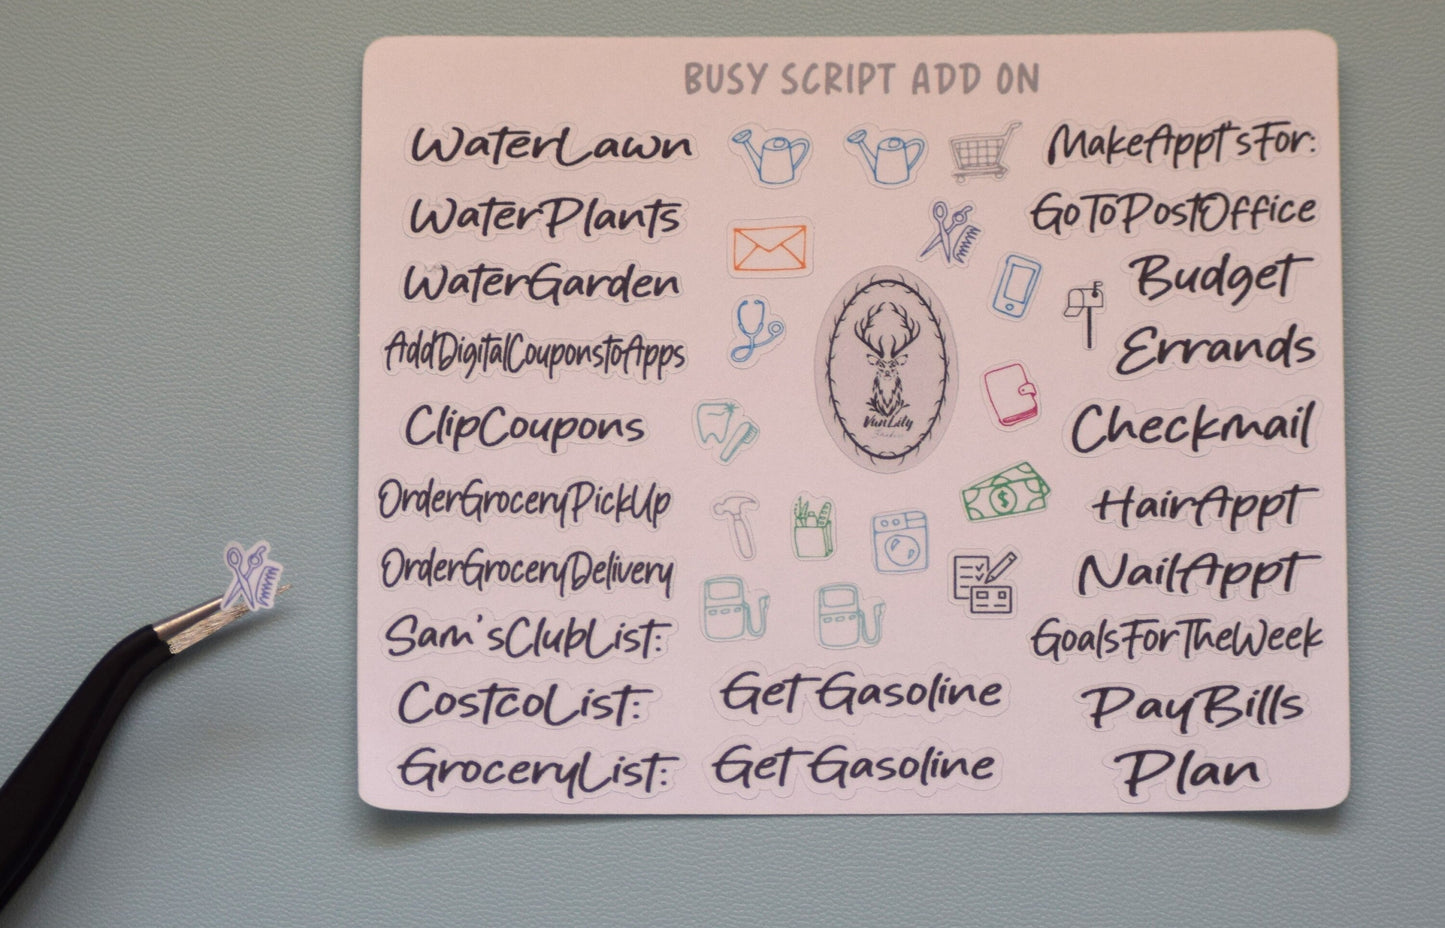 BUSY SCRIPT ADD ON
WaterLawn
WaterPlants
WaterGarden
AddDigitalCouponstoApps
ClipCoupons
OrderGroceryPickUp
OrderGroceryDelivery
Sam'sClubList:
CostcoList:
GroceryList:
$
VunLily
Get Gasoline
Get Gasoline
MakeAppt'sFor:
GoToPostOffice
Budget
Errands
Checkmail
HairAppt
NailAppt
GoalsForTheWeek
PayBills
Plan